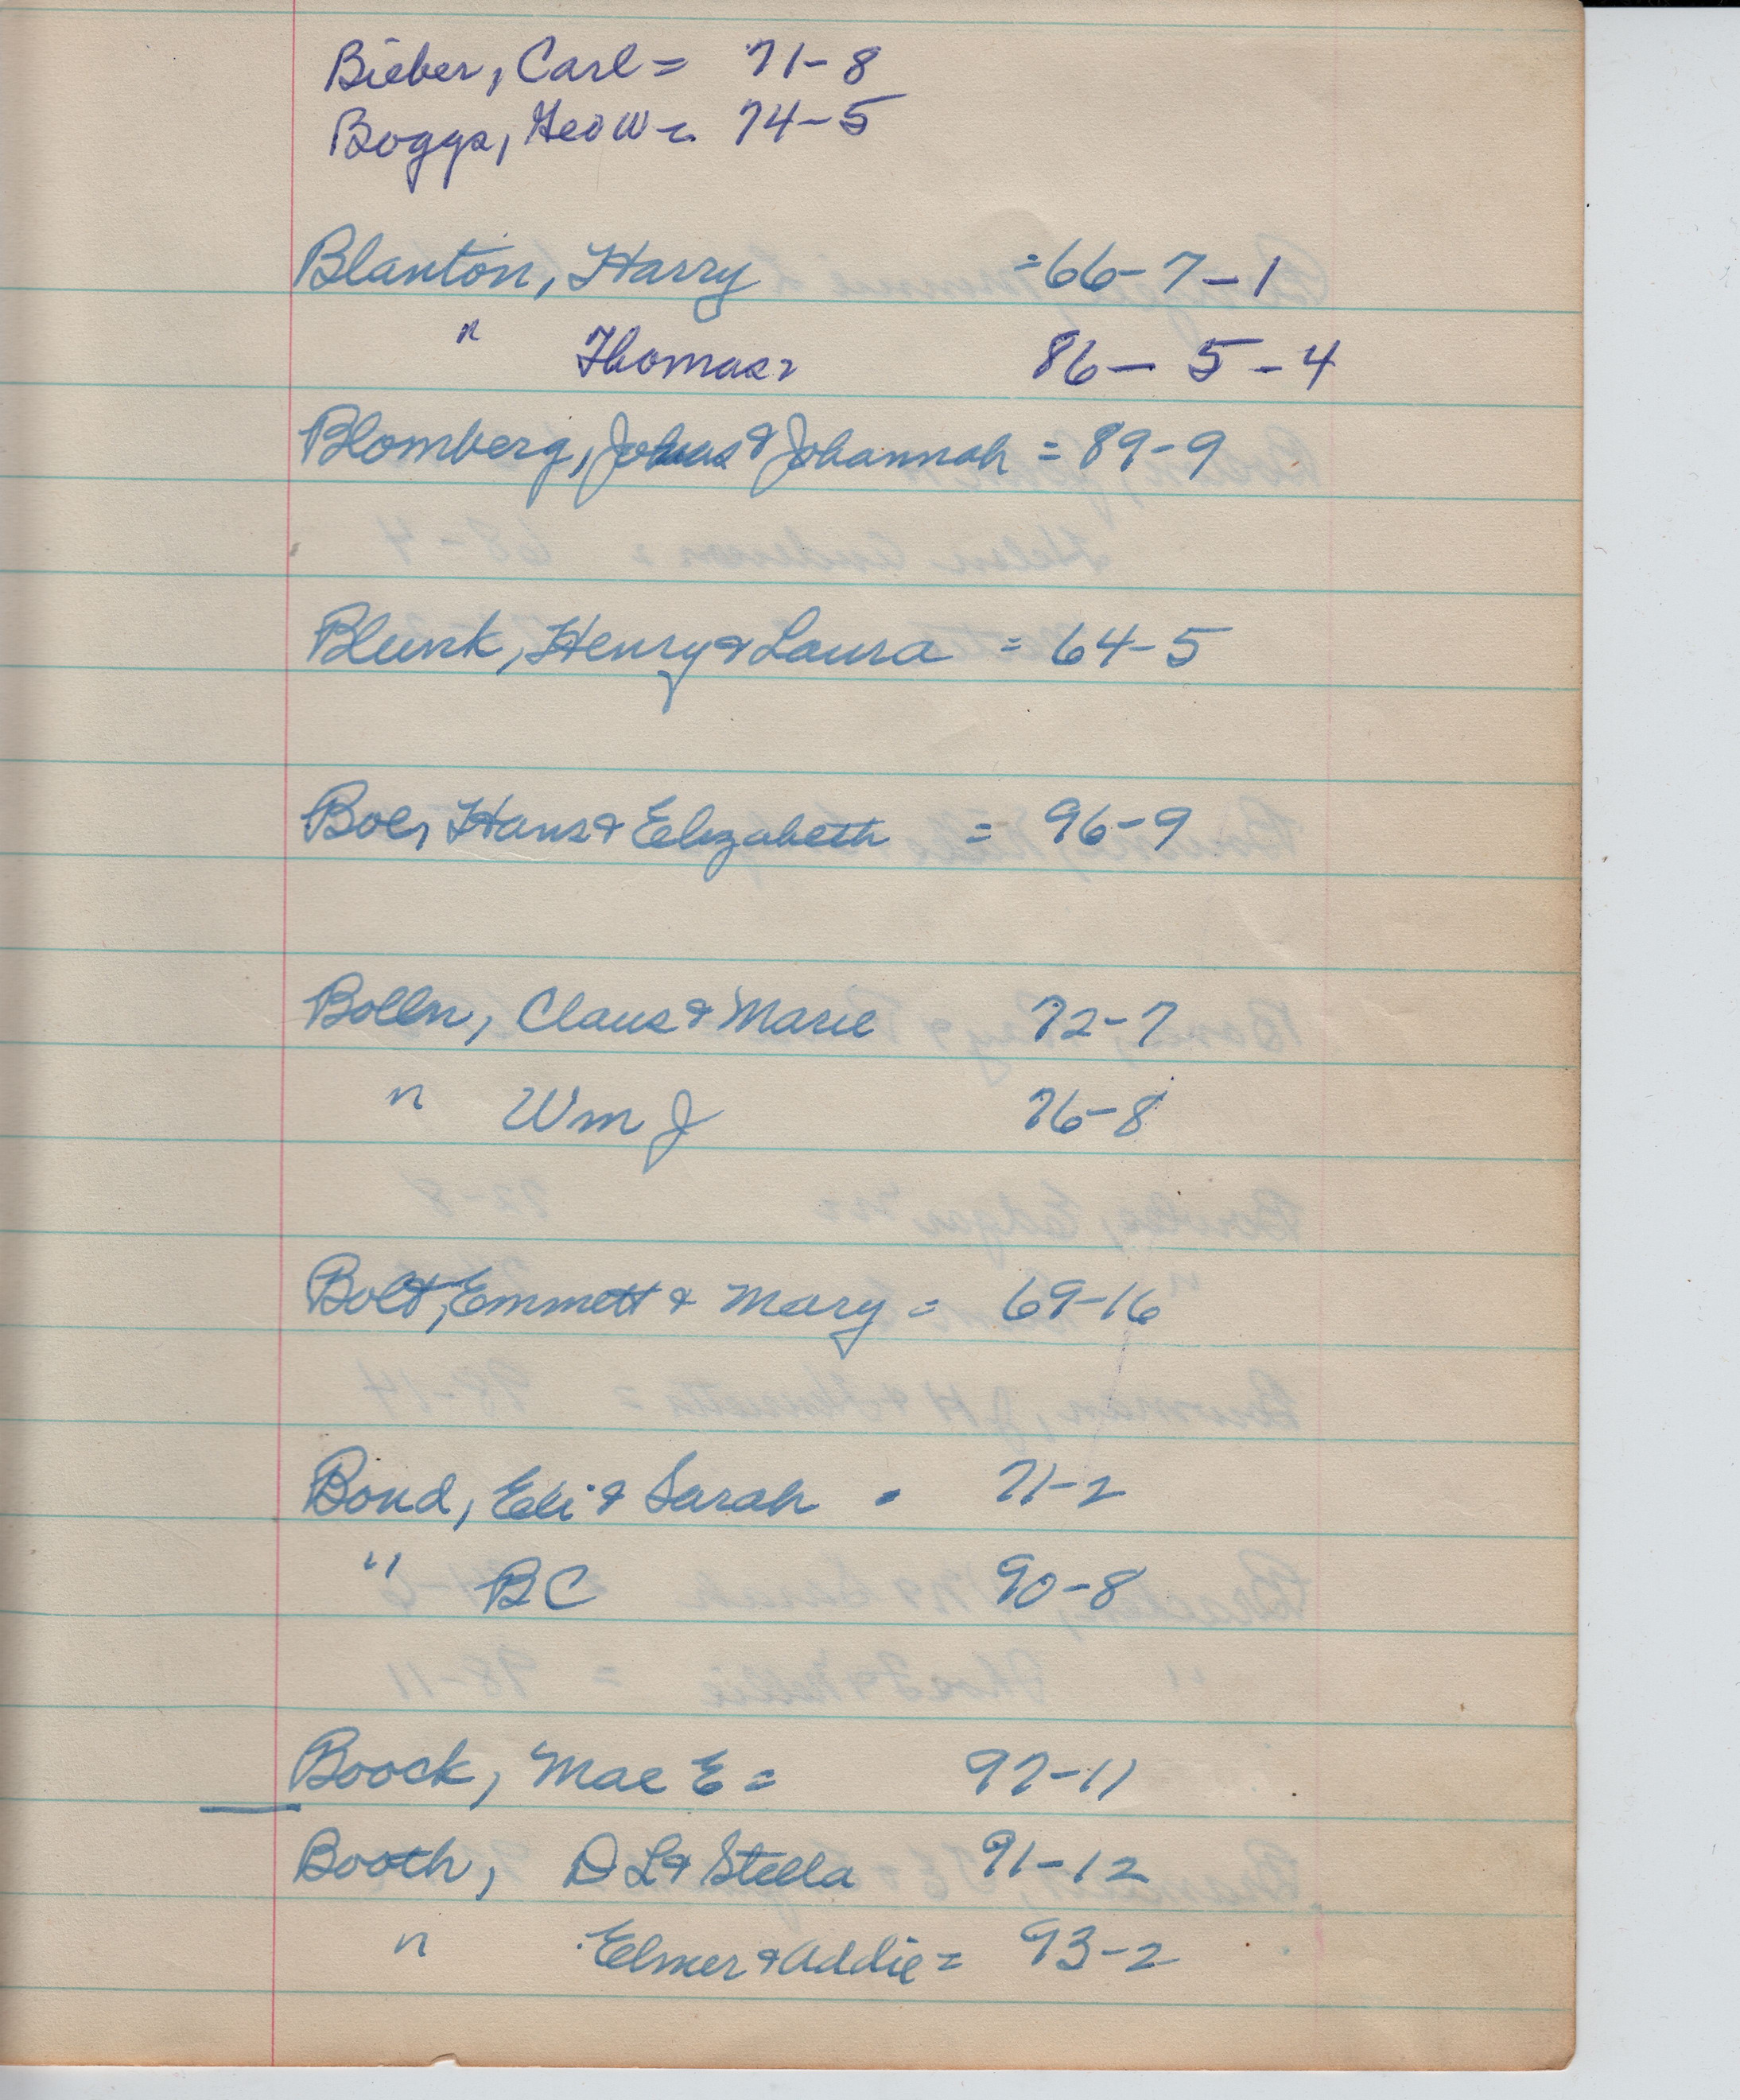 Bieber, Carl = 71-8
Boggs, Geo W = 74-5
Blanton, Harry = 66-7-1
" Thomas = 86-5-4
Blomberg, Jonas & Johannah = 89-9
Blunk, Henry & Laura = 64-5
Boe, Hans & Elizabeth = 96-9
Bolln, Claus & Marie 72-7
" Wm J 76-8
Bolt, Emmett & Mary = 69-16
Bond, Eli & Sarah = 71-2
" BC 90-8
Boock, Mae E = 97-11
Booth, D L & Stella 91-12
" Elmer & Addie = 93-2